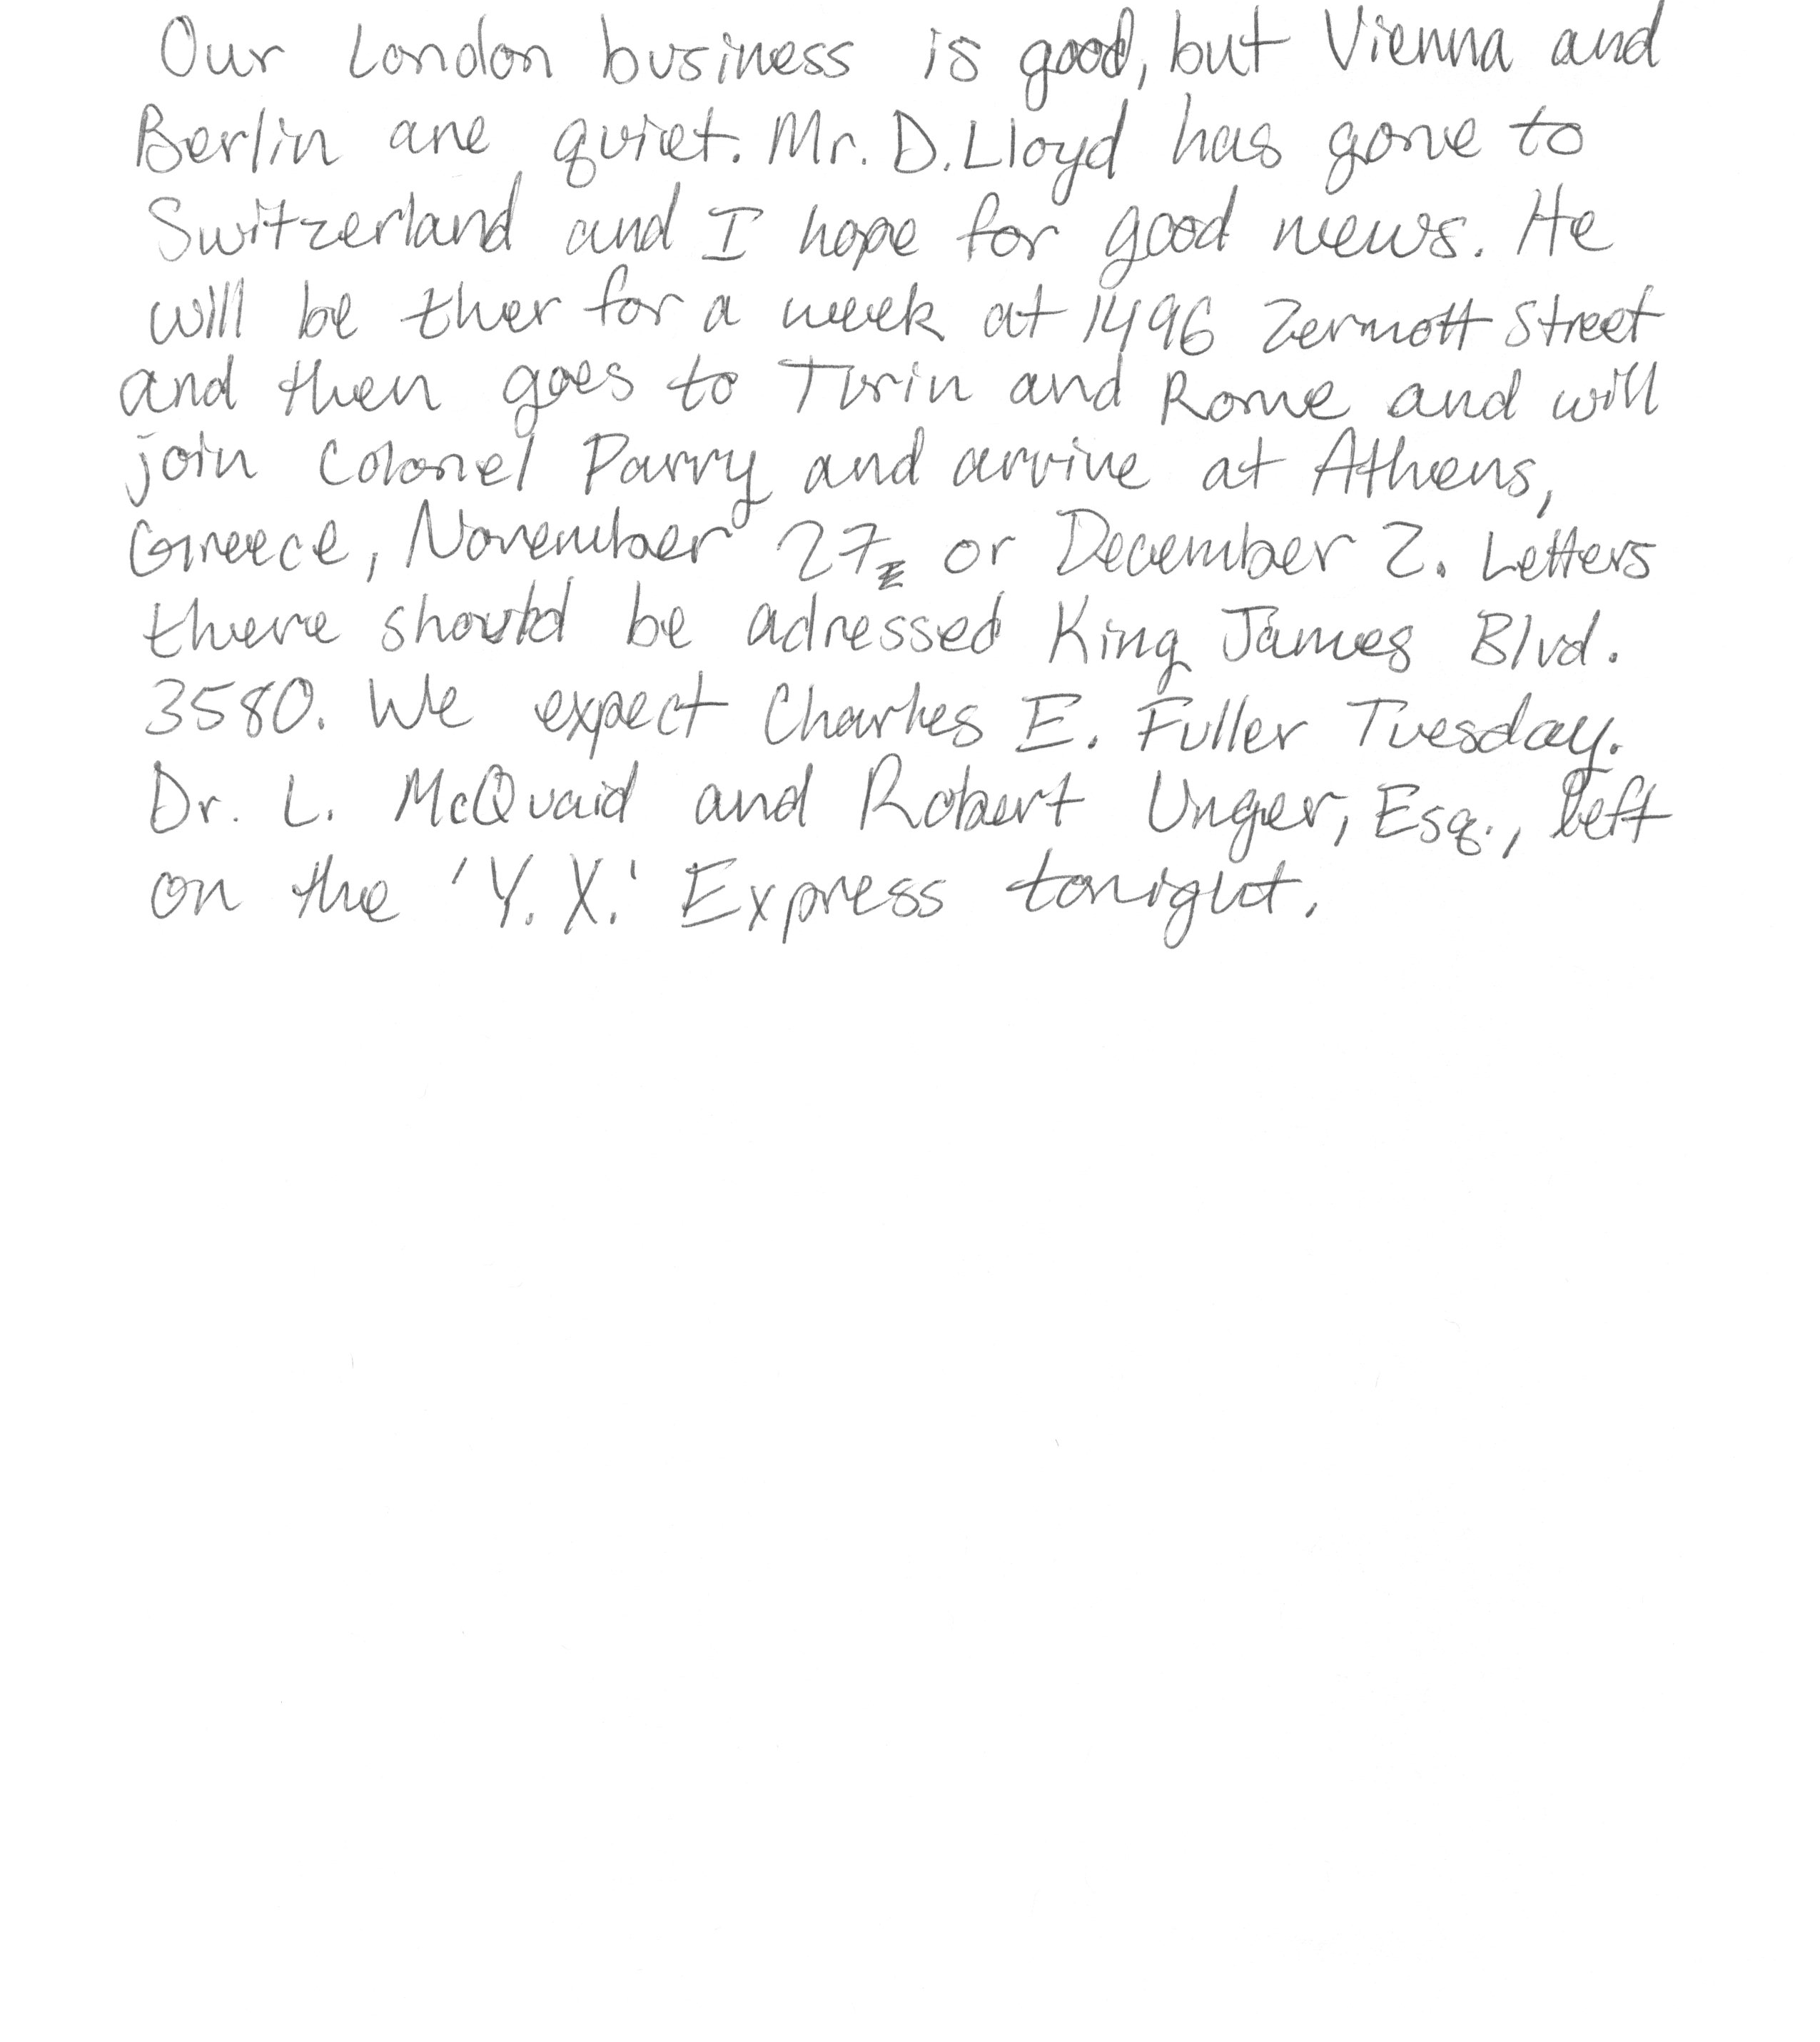 Our London business is good, but Vienna and
Berlin are quiet. Mr. D. Lloyd has gone to
Switzerland and I hope for good news. He
will be ther for a week at 1496 Zermott Street
and then goes to Turin and Rome and will
join Colonel Parry and arrive at Athens,
Greece, November 27 or December 2. Letters
there should be adressed King James Blvd.
3580. We expect Charles E. Fuller Tuesday.
Dr. L. McQuaid and Robert Unger, Esq., left
on the 'Y. X.' Express tonight.